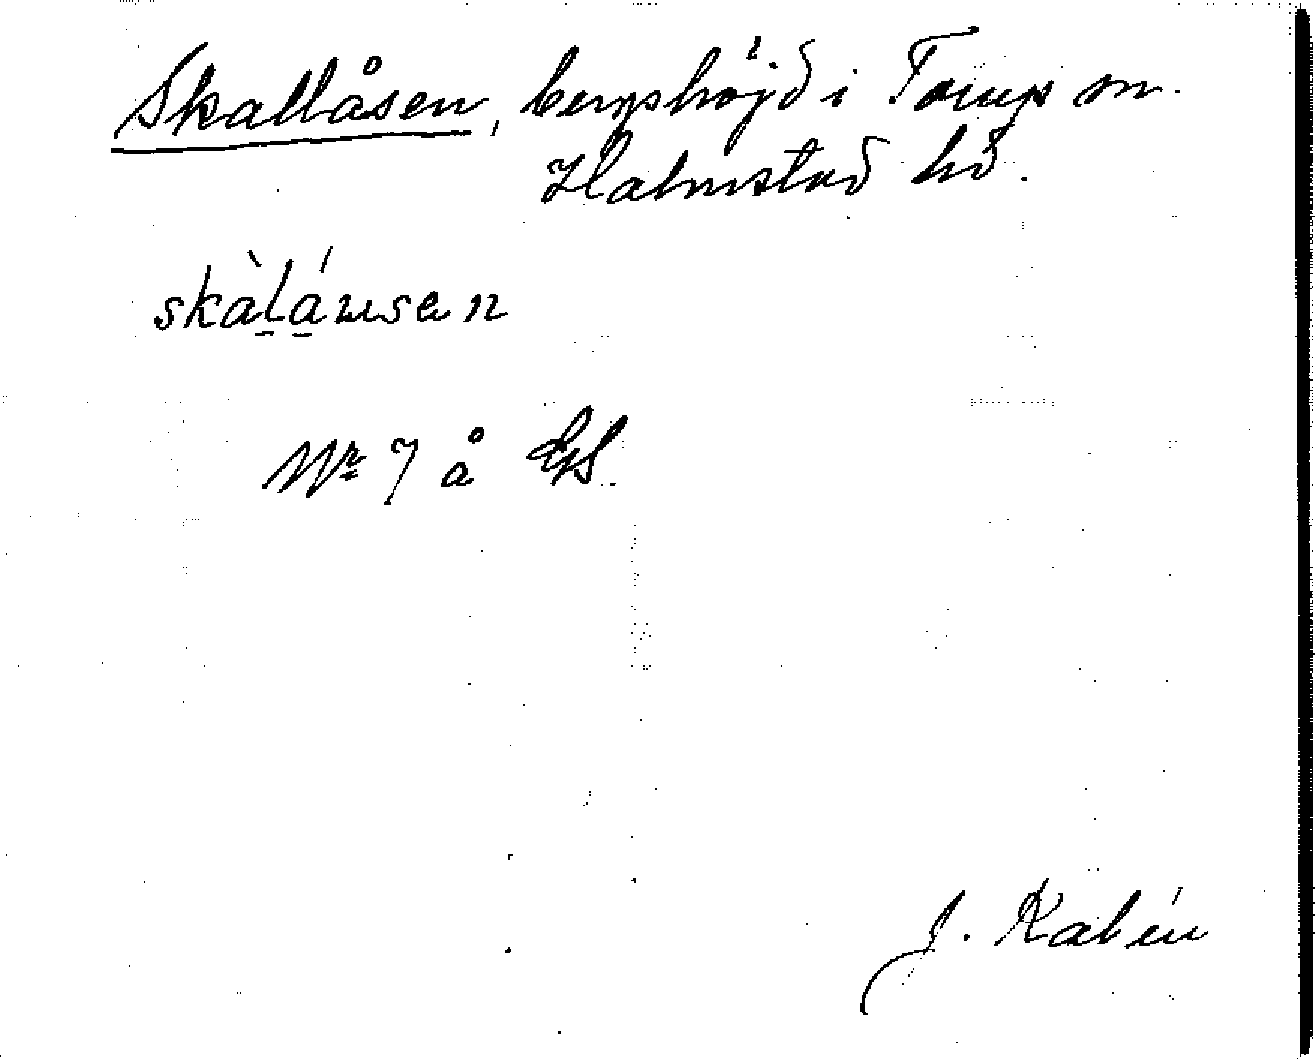 Skallåsen, bergshöjd i Torups sn.
Halmstad hd.
skàlá̱u̱sen
Nr 7 å GS.
J. Kalén